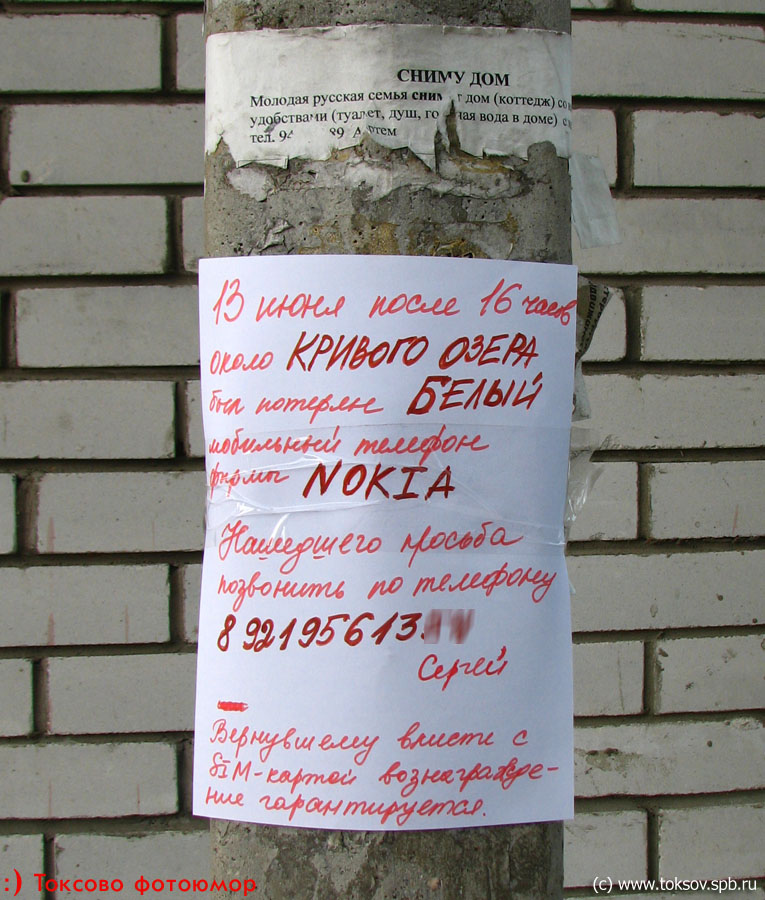 СНИМУ ДОМ
Молодая русская семья дом (коттедж)
удобствами (туалет, душ, вода в доме)
тел.
13 июня после 16 часов
около КРИВОГО ОЗЕРА
был потерян БЕЛЫЙ
мобильный телефон
фирмы NOKIA
Нашедшего просьба
позвонить по телефону
892195613
Сергей
Вернувшему вместе с
SIM-картой вознагражде-
ние гарантируется.
:) Токсово фотоюмор
(c) www.toksov.spb.ru